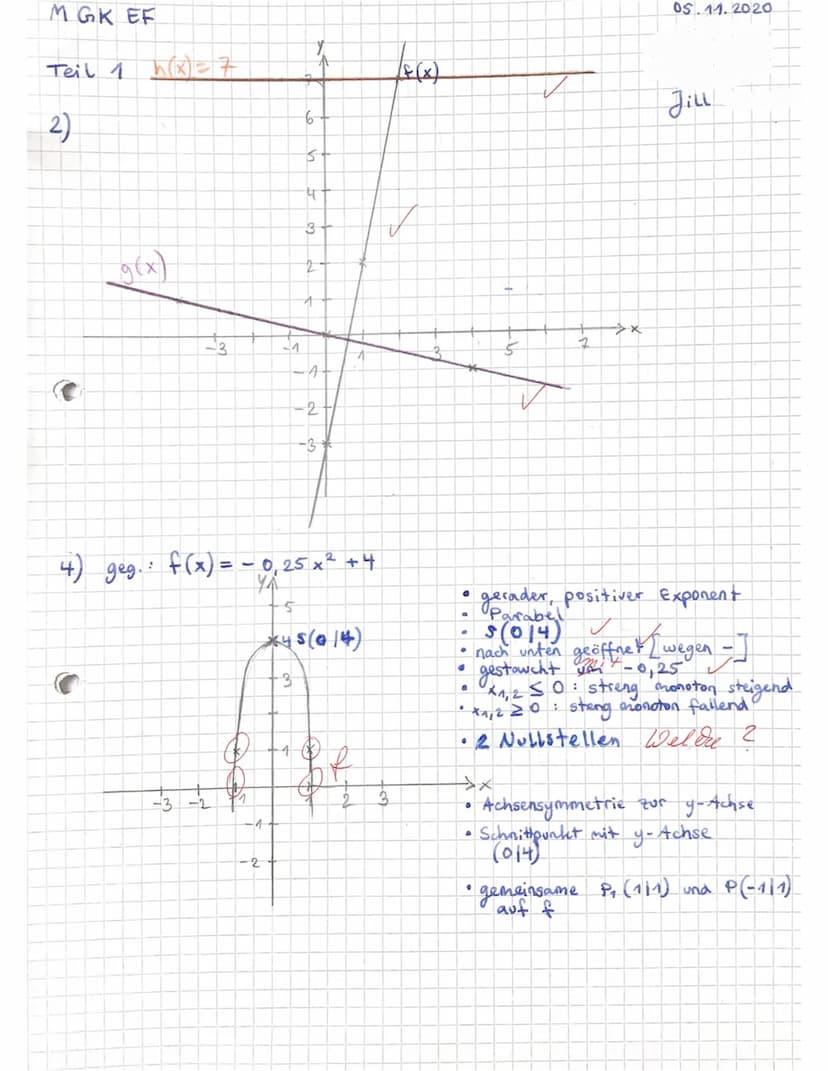 M GK EF
05.11.2020
Teil 1 h(x)= 7
Jill
2)
y
7
f(x)
6
5
4
3
2
1
g(x)
-3 -1 1 3 5 7 x
-1
-2
-3
4) geg.: f(x) = - 0,25 x² + 4
y
5
4 S(0/4)
3
1
f
-3 -2 -1 1 2 3 x
-1
-2
• gerader, positiver Exponent
• Parabel
• S(0/4)
• nach unten geöffnet [wegen -]
• gestaucht mit -0,25
• x1,2 ≤ 0 : streng monoton steigend
• x1,2 ≥ 0 : steng monoton fallend
• 2 Nullstellen Welche ?
• Achsensymmetrie zur y-Achse
• Schnittpunkt mit y-Achse
(0/4)
• gemeinsame P₁ (1/1) und P(-1/1)
auf f